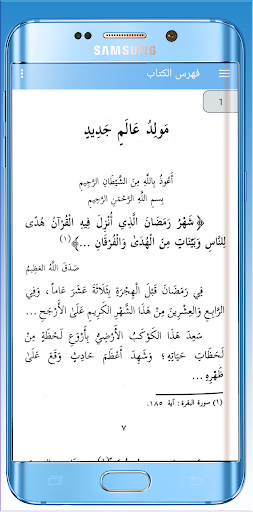 SAMSUNG
فهرس الكتاب
1
مَوْلِدُ عَالَمٍ جَدِيدٍ
أَعُوذُ بِاللَّهِ مِنَ الشَّيْطَانِ الرَّجِيمِ
بِسمِ اللَّهِ الرَّحْمَنِ الرَّحِيمِ
﴿ شَهْرُ رَمَضَانَ الَّذِي أُنْزِلَ فِيهِ الْقُرْآنُ هُدًى
لِلنَّاسِ وَبَيِّنَاتٍ مِنَ الْهُدَىٰ وَالْفُرْقَانِ ...﴾(١)
صَدَقَ اللَّهُ العَظِيمُ
فِي رَمَضَانَ قَبْلَ الْهِجْرَةِ بِثَلَاثَةَ عَشَرَ عَاماً، وَفِي
الرَّابِعِ وَالْعِشْرِينَ مِنْ هَذَا الشَّهْرِ الكَرِيمِ عَلَىٰ الأَرْجَحِ ...
سَعِدَ هَذَا الكَوْكَبُ الأَرْضِيُّ بِأَرْوَعِ لَحْظَةٍ مِنْ
لَحظَاتِ حَيَاتِهِ؛ وَشَهِدَ أَعْظَمَ حَادِثٍ وَقَعَ عَلَىٰ
ظَهْرِهِ ...
(١) سورة البقرة: آية ١٨٥.
٧